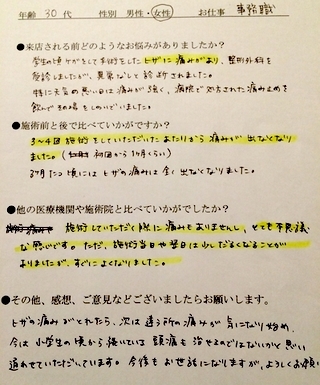 年齢 30代 性別 男性・女性 お仕事 事務職
●来店される前どのようなお悩みがありましたか?
学生の頃ケガをして手術をしたヒザに痛みがあり、整形外科を
受診しましたが、異常なしと診断されました。
特に天気の悪い日は痛みが強く、病院で処方された痛み止めを
飲んでその場をしのいでいました。
●施術前と後で比べていかがですか?
3～4回施術をしていただいたあたりから痛みが出なくなり
ました。(初回から1ヶ月くらい)
3ヶ月たつ頃にはヒザの痛みは全く出なくなりました。
●他の医療機関や施術院と比べていかがでしたか?
施術していただく際に痛みもありませんし、とても不思議
な感じです。ただ、施術当日や翌日は少しだるくなることが
ありましたが、すぐによくなりました。
●その他、感想、ご意見などございましたらお願いします。
ヒザの痛みがとれたら、次は違う所の痛みが気になり始め、
今は小学生の頃から続いている頭痛も治せるのではないかと思い
通わせていただいています。今後もお世話になりますが、よろしくお願い